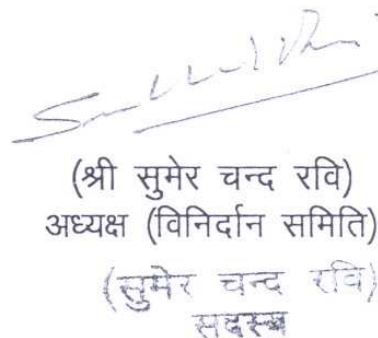 (श्री सुमेर चन्द रवि)
अध्यक्ष (विनिर्दान समिति)
(सुमेर चन्द रवि)
सदस्य